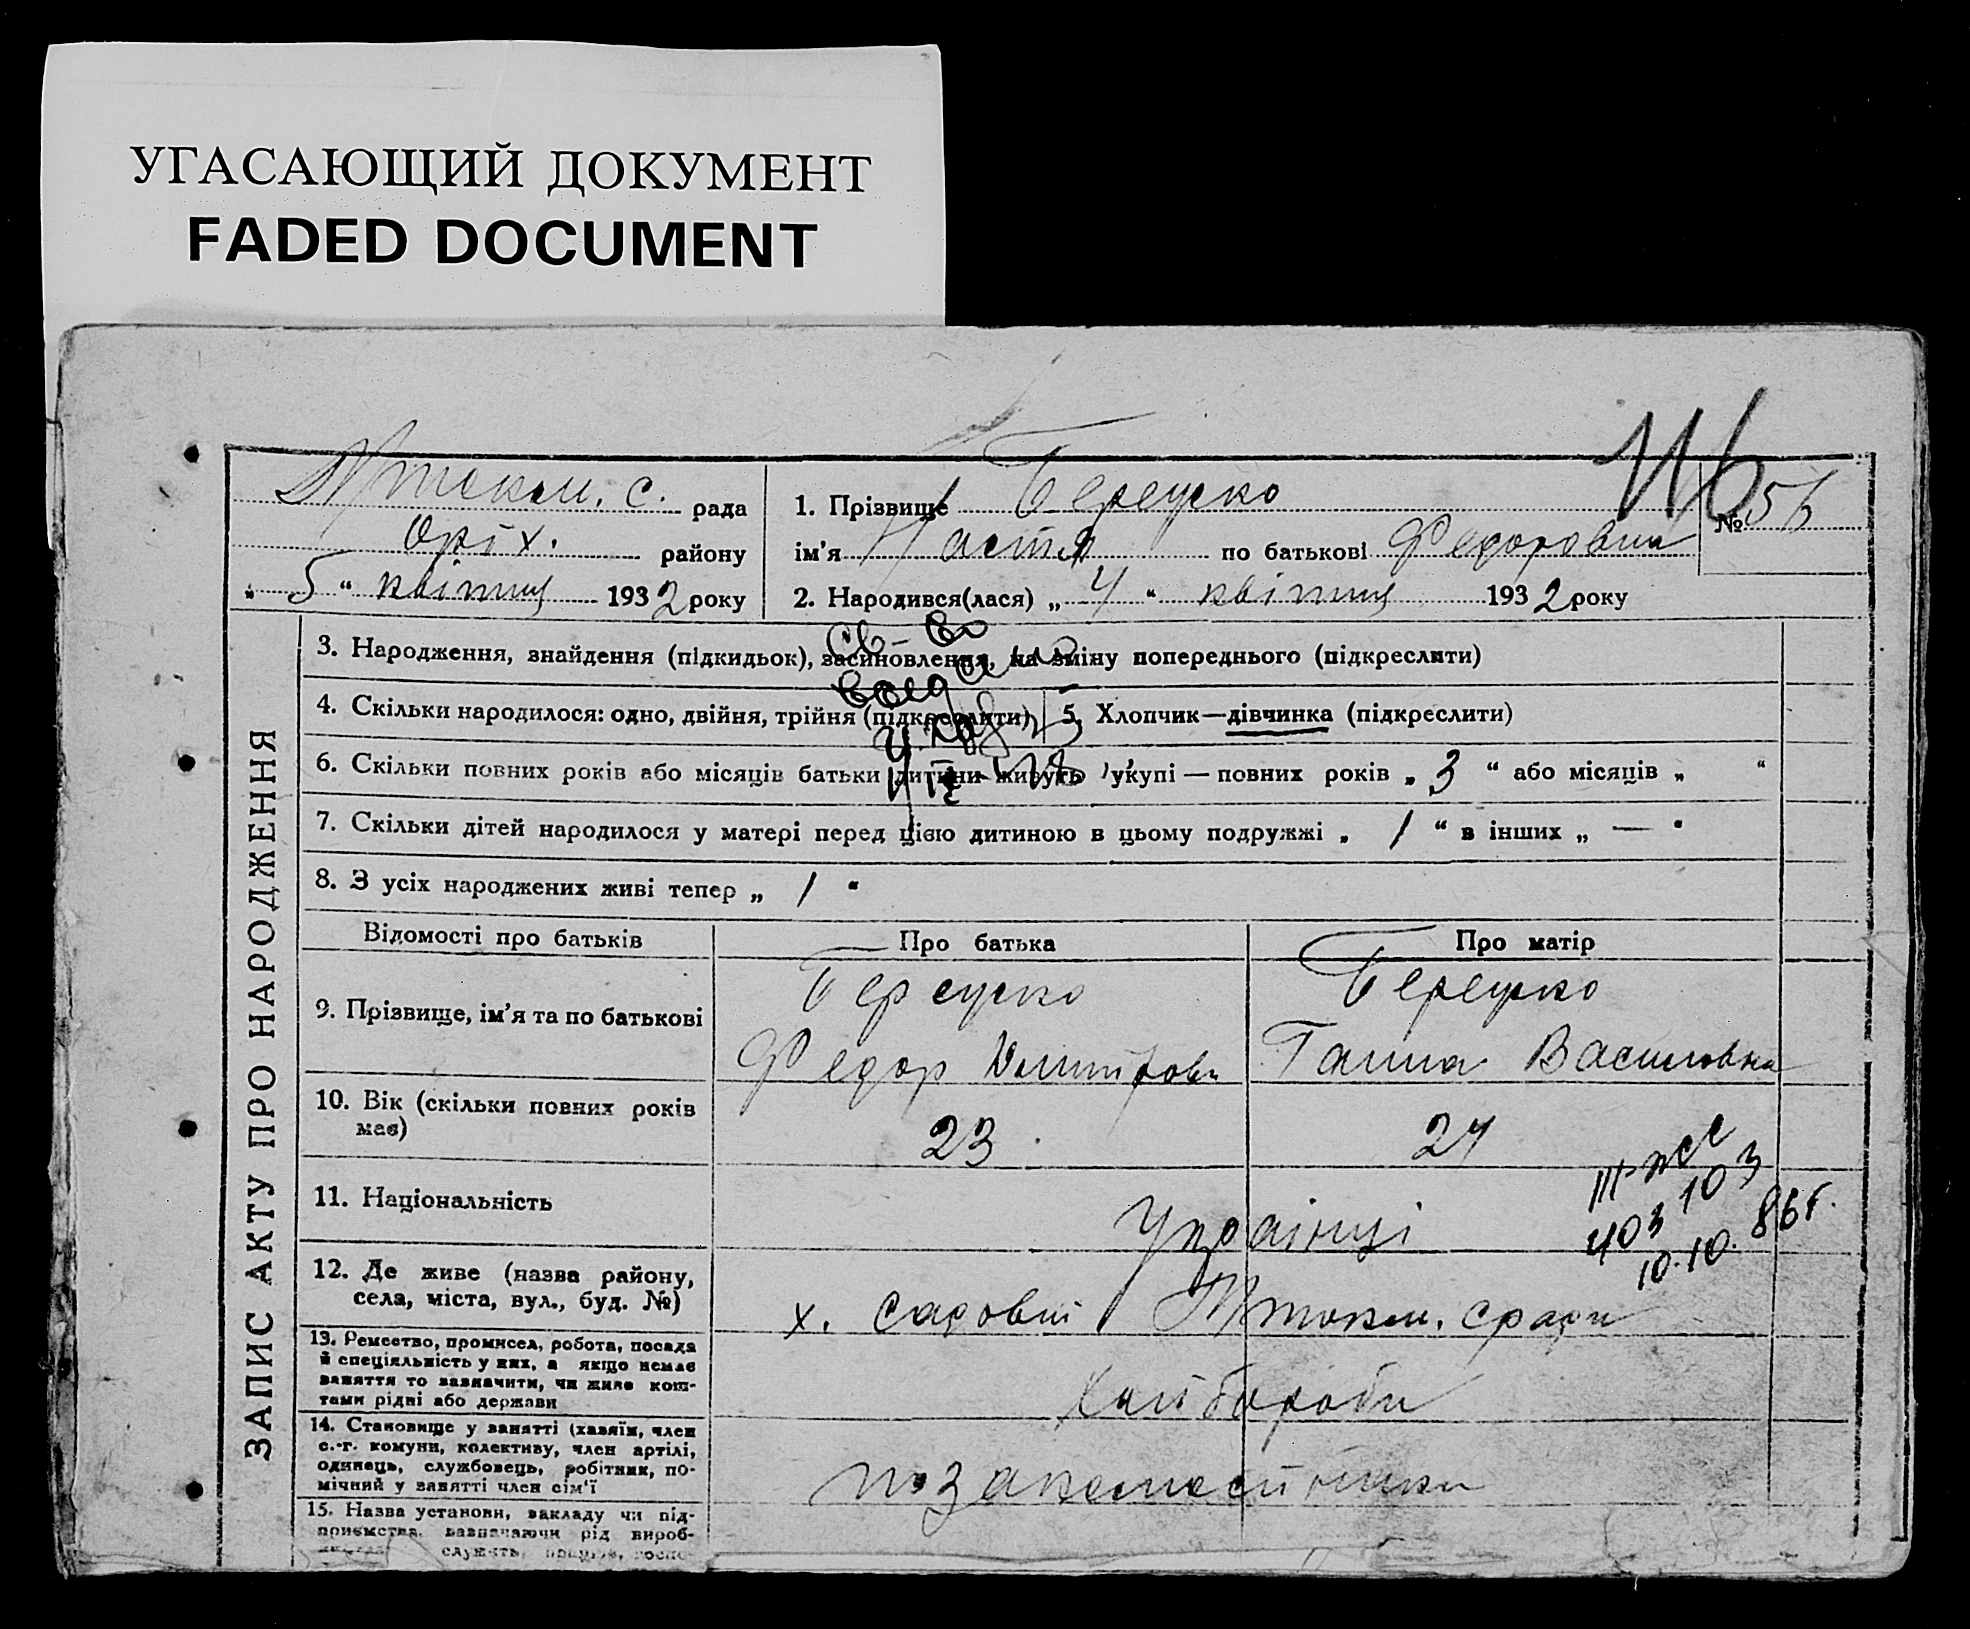 УГАСАЮЩИЙ ДОКУМЕНТ
FADED DOCUMENT
с. рада
Оріх. району
„ 5 “ квітня 1932 року
1. Прізвище
№ 56
ім'я Настя по батькові Федоровна
2. Народився(лася) „ 4 “ квітня 1932 року
ЗАПИС АКТУ ПРО НАРОДЖЕННЯ
3. Народження, знайдення (підкидьок), засиновлення, на зміну попереднього (підкреслити)
4. Скільки народилося: одно, двійня, трійня (підкреслити)
5. Хлопчик—дівчинка (підкреслити)
6. Скільки повних років або місяців батьки дитини живуть укупі — повних років „ 3 “ або місяців „ “
7. Скільки дітей народилося у матері перед цією дитиною в цьому подружжі „ 1 “ в інших „ — “
8. З усіх народжених живі тепер „ 1 “
Відомості про батьків Про батька Про матір
9. Прізвище, ім'я та по батькові
Федор Ганна Василовна
10. Вік (скільки повних років
має)
23 24
11. Національність
Українці
403 103
10.10.86г.
12. Де живе (назва району,
села, міста, вул., буд. №)
х. Садовий
13. Ремество, промисел, робота, посада
й спеціяльність у них, а якщо немає
заняття то зазначити, чи живе кош-
тами рідні або держави
Хлібороби
14. Становище у занятті (хазяїн, член
с.-г. комуни, колективу, член артілі,
одинець, службовець, робітник, по-
мічний у занятті член сім'ї
15. Назва установи, закладу чи під-
приємства, зазначаючи рід вироб-
служить,